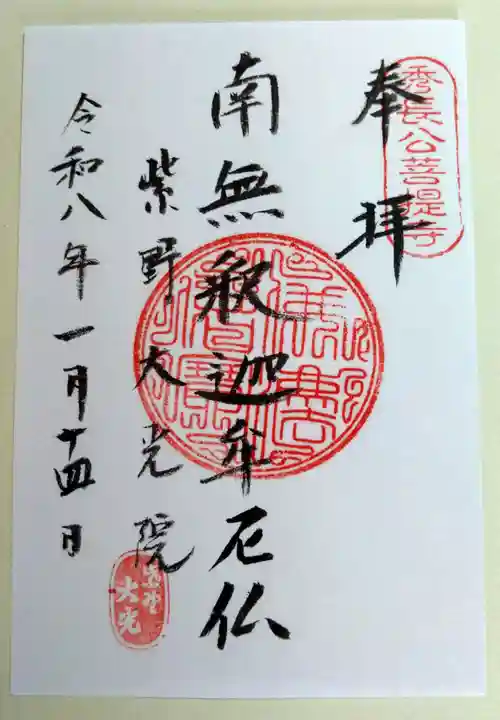 秀長公菩提寺
奉拝
南無釈迦牟尼仏
紫野大光院
令和八年一月十四日
大光